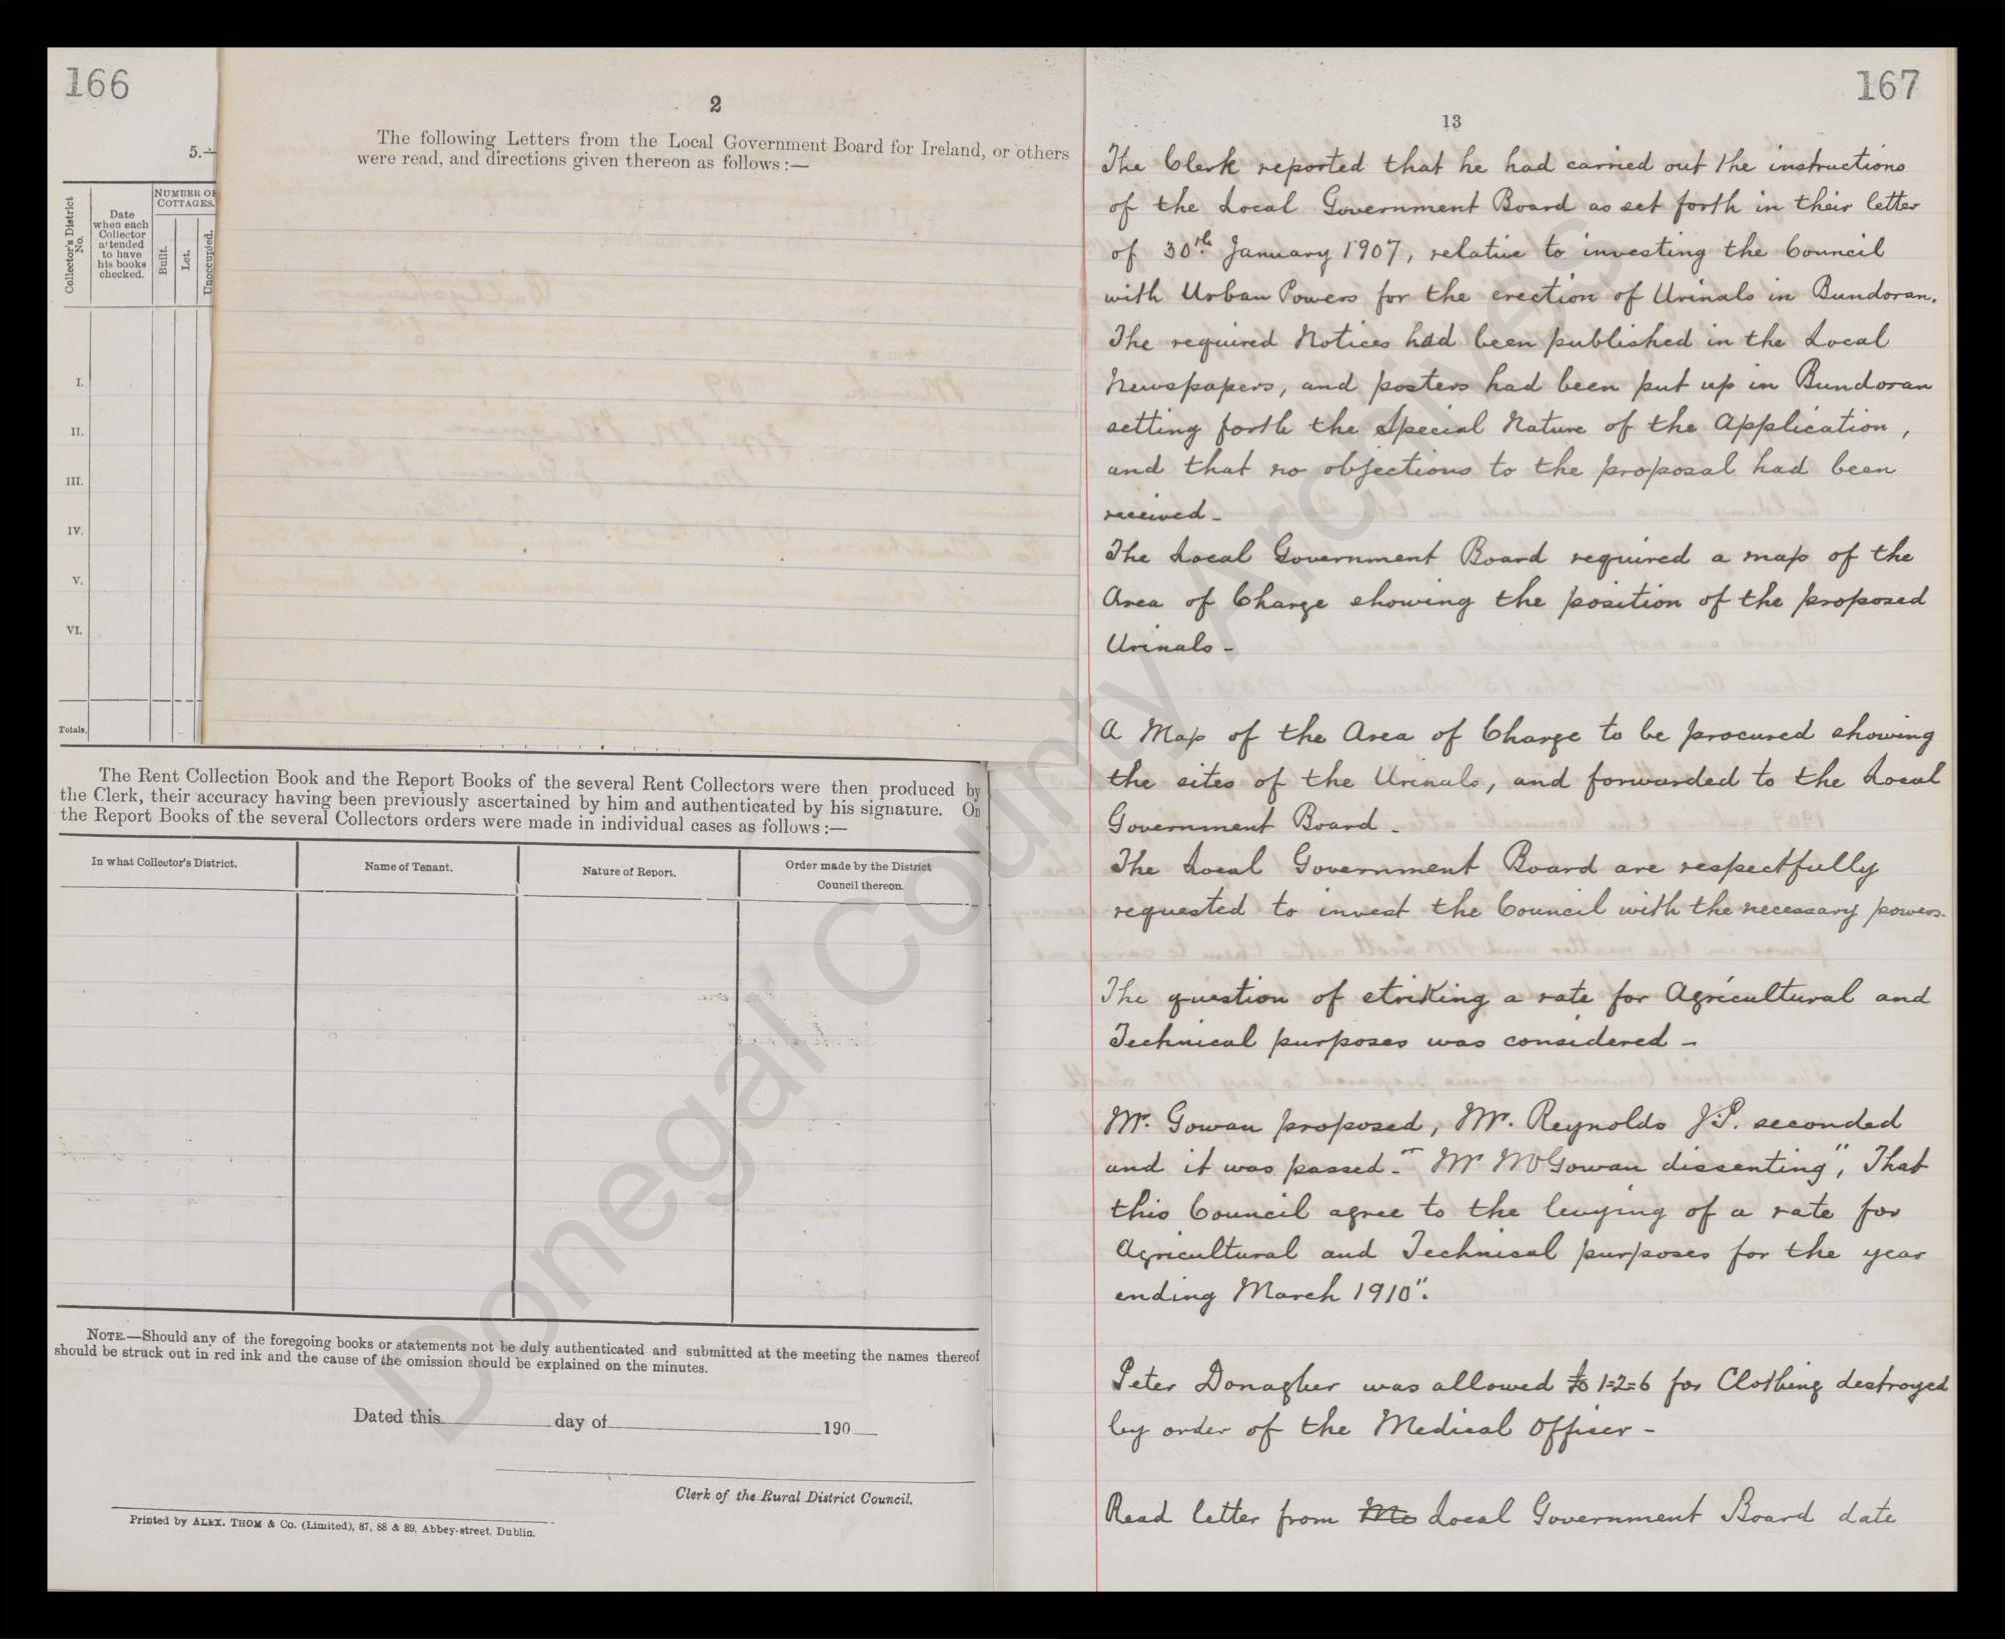 166
2
The following Letters from the Local Government Board for Ireland, or others
were read, and directions given thereon as follows :—
5.—
Collector's District No.
Date when each Collector attended to have his books checked.
NUMBER OF COTTAGES.
Built.
Let.
Unoccupied.
I.
II.
III.
IV.
V.
VI.
Totals,
The Rent Collection Book and the Report Books of the several Rent Collectors were then produced by
the Clerk, their accuracy having been previously ascertained by him and authenticated by his signature. On
the Report Books of the several Collectors orders were made in individual cases as follows :—
In what Collector's District.
Name of Tenant.
Nature of Report.
Order made by the District
Council thereon.
NOTE.—Should any of the foregoing books or statements not be duly authenticated and submitted at the meeting the names thereof
should be struck out in red ink and the cause of the omission should be explained on the minutes.
Dated this day of 190
Clerk of the Rural District Council.
Printed by ALEX. THOM & Co. (Limited), 87, 88 & 89, Abbey-street, Dublin.
167
13
The Clerk reported that he had carried out the instructions
of the Local Government Board as set forth in their letter
of 30th January 1907, relative to investing the Council
with Urban Powers for the erection of Urinals in Bundoran.
The required Notices had been published in the Local
Newspapers, and posters had been put up in Bundoran
setting forth the Special Nature of the Application,
and that no objections to the proposal had been
received -
The Local Government Board required a map of the
Area of Charge showing the position of the proposed
Urinals -
A Map of the Area of Charge to be procured showing
the sites of the Urinals, and forwarded to the Local
Government Board -
The Local Government Board are respectfully
requested to invest the Council with the necessary powers.
The question of striking a rate for Agricultural and
Technical purposes was considered -
Mr. Gowan proposed, Mr. Reynolds J.P. seconded
and it was passed - "Mr McGowan dissenting", That
this Council agree to the levying of a rate for
Agricultural and Technical purposes for the year
ending March 1910".
Peter Donagher was allowed £1=2=6 for Clothing destroyed
by order of the Medical Officer -
Read letter from Local Government Board date
Donegal County Archives